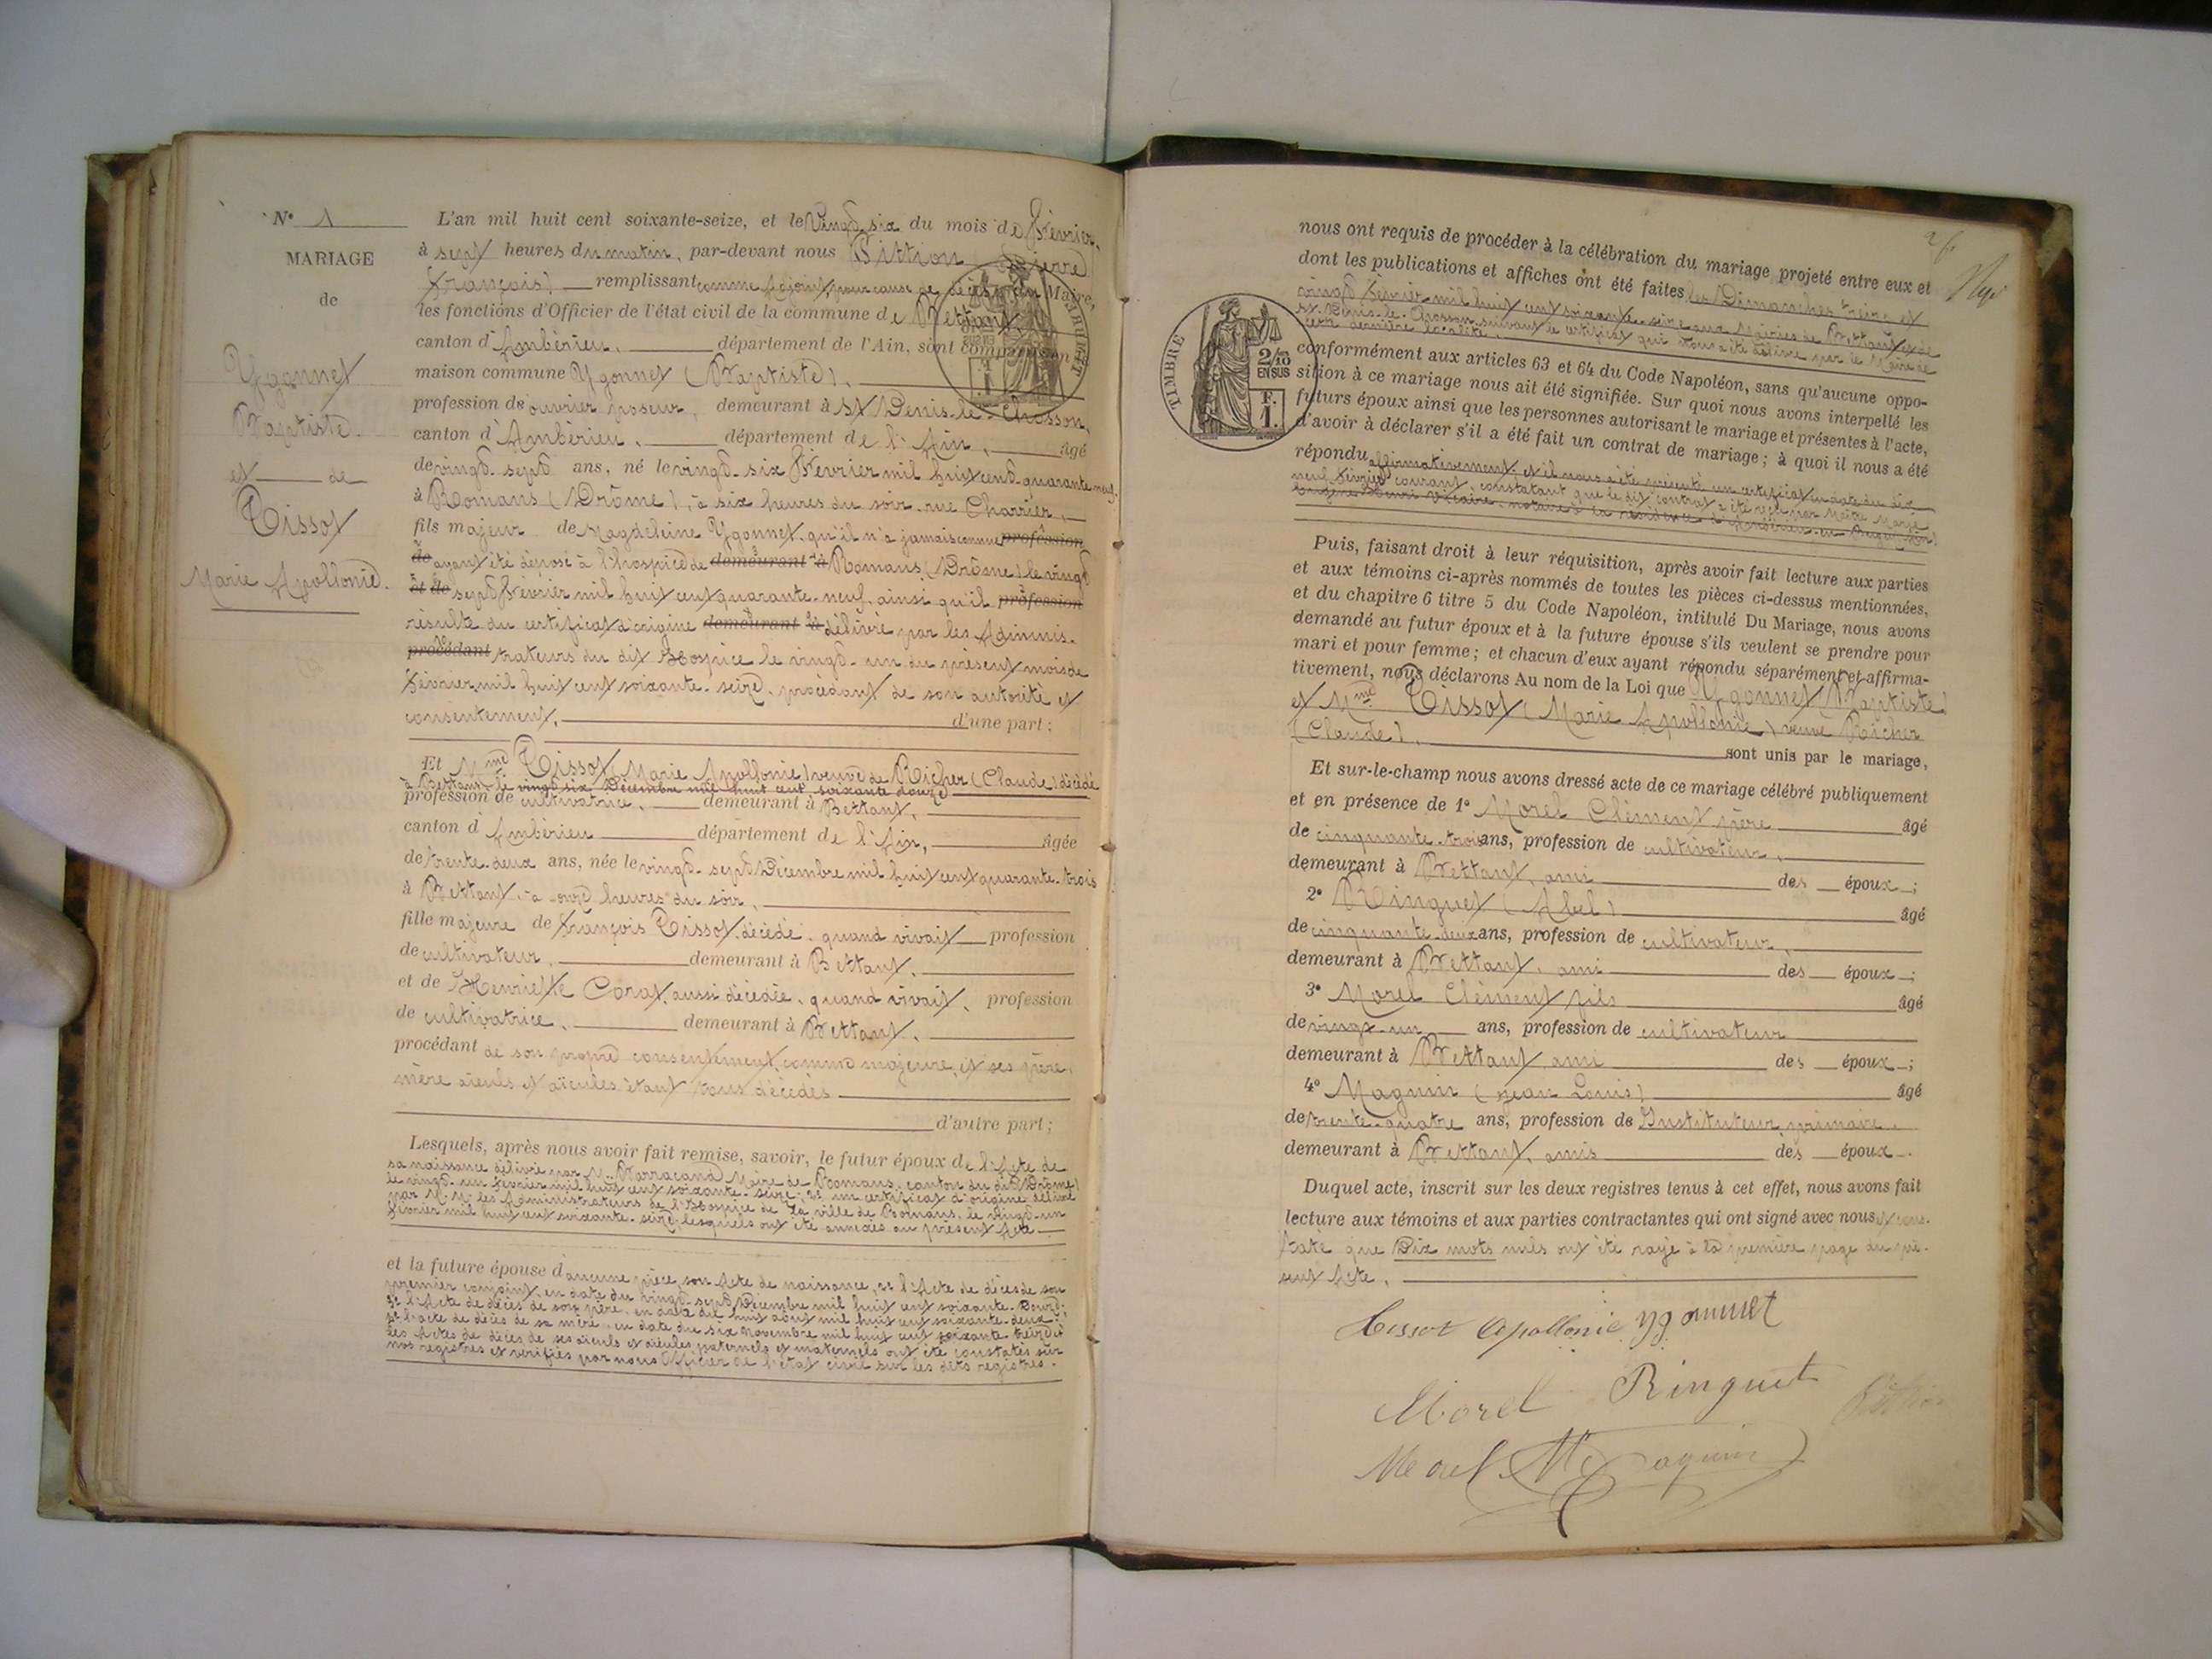 N° 1
MARIAGE
de
Ygonnet
Baptiste
et de
Tissot
Marie Apollonie.
L'an mil huit cent soixante-seize, et le Vingt six du mois de Février,
à sept heures du matin, par-devant nous Pittion Pierre
François, remplissant comme Adjoint, pour cause de décès du Maire,
les fonctions d'Officier de l'état civil de la commune de Bettant,
canton d'Ambérieu, département de l'Ain, sont comparus en
maison commune Ygonnet (Baptiste),
profession de ouvrier poseur, demeurant à St Denis-le-Chosson,
canton d'Ambérieu, département de l'Ain, âgé
de vingt-sept ans, né le vingt-six Février mil huit cent quarante neuf,
à Romans (Drôme), à six heures du soir, rue Charrier,
fils majeur de Magdeleine Ygonnet, qu'il n'a jamais connue profession
de ayant été déposé à l'hospice de demeurant à Romans (Drôme) le vingt
et de sept Février mil huit cent quarante-neuf, ainsi qu'il profession
résulte du certificat d'origine demeurant à délivré par les Adminis-
procédant trateurs du dit Hospice le vingt-un du présent mois de
Février mil huit cent soixante-seize, procédant de son autorité et
consentement, d'une part;
Et Mme Tissot (Marie Apollonie) veuve de Richer (Claude) décédé
à Bettant le vingt six Décembre mil huit cent soixante douze
profession de cultivatrice, demeurant à Bettant,
canton d'Ambérieu département de l'Ain, âgée
de trente-deux ans, née le vingt-sept Décembre mil huit cent quarante-trois
à Bettant, à onze heures du soir,
fille majeure de François Tissot, décédé, quand vivait profession
de cultivateur, demeurant à Bettant,
et de Henriette Corat, aussi décédée, quand vivait, profession
de cultivatrice, demeurant à Bettant,
procédant de son propre consentement, comme majeure, et ses père,
mère aïeuls et aïeules étant tous décédés
d'autre part;
Lesquels, après nous avoir fait remise, savoir, le futur époux de l'Acte de
sa naissance délivré par M. Marracand Maire de Romans, canton du dit (Drôme)
le vingt-un Février mil huit cent soixante-seize; 2° un certificat d'origine délivré
par M.M. les Administrateurs de l'Hospice de la ville de Romans, le vingt-un
Février mil huit cent soixante-seize, lesquels ont été annexés au présent Acte
et la future épouse d'aucune pièce, son Acte de naissance, 2° l'Acte de décès de son
premier conjoint, en date du vingt-sept Décembre mil huit cent soixante-douze;
3° l'Acte de décès de son père, en date du huit août mil huit cent soixante-deux;
4° l'acte de décès de sa mère, en date du six novembre mil huit cent soixante-treize; et
les Actes de décès de ses aïeuls et aïeules paternels et maternels ont été constatés sur
nos registres et vérifiés par nous Officier de l'état civil sur les dits registres.
nous ont requis de procéder à la célébration du mariage projeté entre eux et
dont les publications et affiches ont été faites les Dimanches treize et
vingt Février mil huit cent soixante-seize aux Mairies de Bettant et de
St Denis-le-Chosson, suivant le certificat qui nous a été délivré par le Maire de
cette dernière localité,
TIMBRE
2/10
EN SUS
F.
1.
conformément aux articles 63 et 64 du Code Napoléon, sans qu'aucune oppo-
sition à ce mariage nous ait été signifiée. Sur quoi nous avons interpellé les
futurs époux ainsi que les personnes autorisant le mariage et présentes à l'acte,
d'avoir à déclarer s'il a été fait un contrat de mariage; à quoi il nous a été
répondu affirmativement, et il nous a été présenté un certificat en date du dix
neuf Février courant, constatant que le dit contrat a été reçu par Maître Marie
Eugène notaire à la résidence d'Ambérieu-en-Bugey (Ain)
Puis, faisant droit à leur réquisition, après avoir fait lecture aux parties
et aux témoins ci-après nommés de toutes les pièces ci-dessus mentionnées,
et du chapitre 6 titre 5 du Code Napoléon, intitulé Du Mariage, nous avons
demandé au futur époux et à la future épouse s'ils veulent se prendre pour
mari et pour femme; et chacun d'eux ayant répondu séparément et affirma-
tivement, nous déclarons Au nom de la Loi que Ygonnet (Baptiste)
et Mme Tissot (Marie Apollonie) veuve Richer
(Claude), sont unis par le mariage,
Et sur-le-champ nous avons dressé acte de ce mariage célébré publiquement
et en présence de 1° Morel Clément père âgé
de cinquante-trois ans, profession de cultivateur,
demeurant à Bettant, ami des époux;
2° Ringuet (Abel) âgé
de cinquante-deux ans, profession de cultivateur,
demeurant à Bettant, ami des époux;
3° Morel Clément fils âgé
de vingt-un ans, profession de cultivateur
demeurant à Bettant, ami des époux;
4° Magnin (Jean Louis) âgé
de trente-quatre ans, profession de Instituteur primaire,
demeurant à Bettant, amis des époux.
Duquel acte, inscrit sur les deux registres tenus à cet effet, nous avons fait
lecture aux témoins et aux parties contractantes qui ont signé avec nous, et cons-
tate que Dix mots nuls ont été rayé à la première page du pré-
sent Acte.
Tissot Apollonie Ygonnet
Morel Ringuet Pittion
Morel Magnin